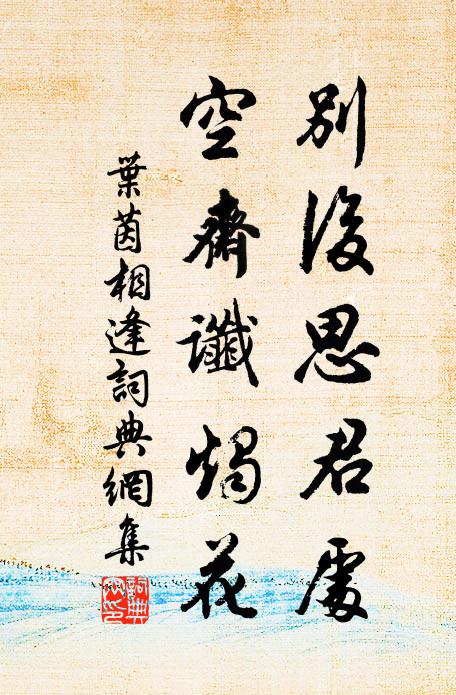 別後思君處
空齋讖燭花
葉茵相逢詞典網集